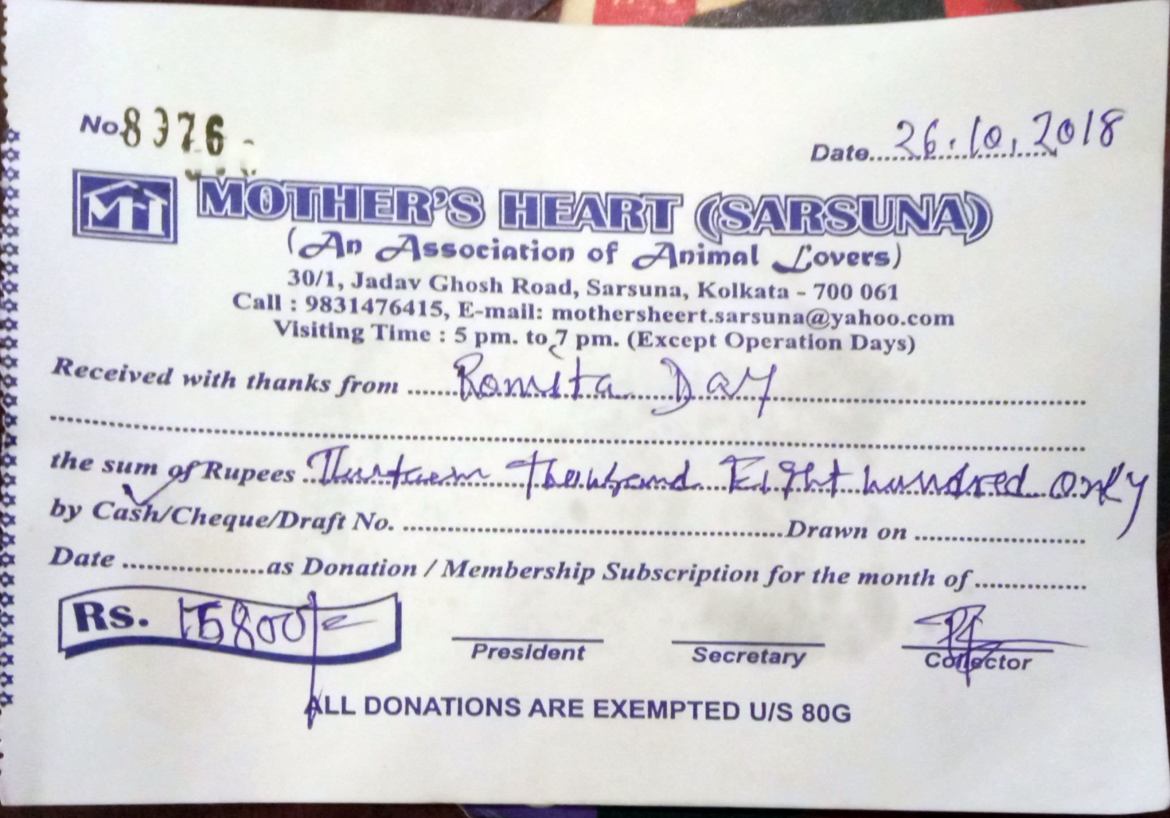 No. 8376
Date 26.10.2018
MH MOTHER'S HEART (SARSUNA)
(An Association of Animal Lovers)
30/1, Jadav Ghosh Road, Sarsuna, Kolkata - 700 061
Call : 9831476415, E-mail: mothersheert.sarsuna@yahoo.com
Visiting Time : 5 pm. to 7 pm. (Except Operation Days)
Received with thanks from Romita Day
the sum of Rupees Thirteen Thousand Eight hundred only
by Cash/Cheque/Draft No. Drawn on
Date as Donation / Membership Subscription for the month of
Rs. 15800/=
President Secretary Collector
ALL DONATIONS ARE EXEMPTED U/S 80G